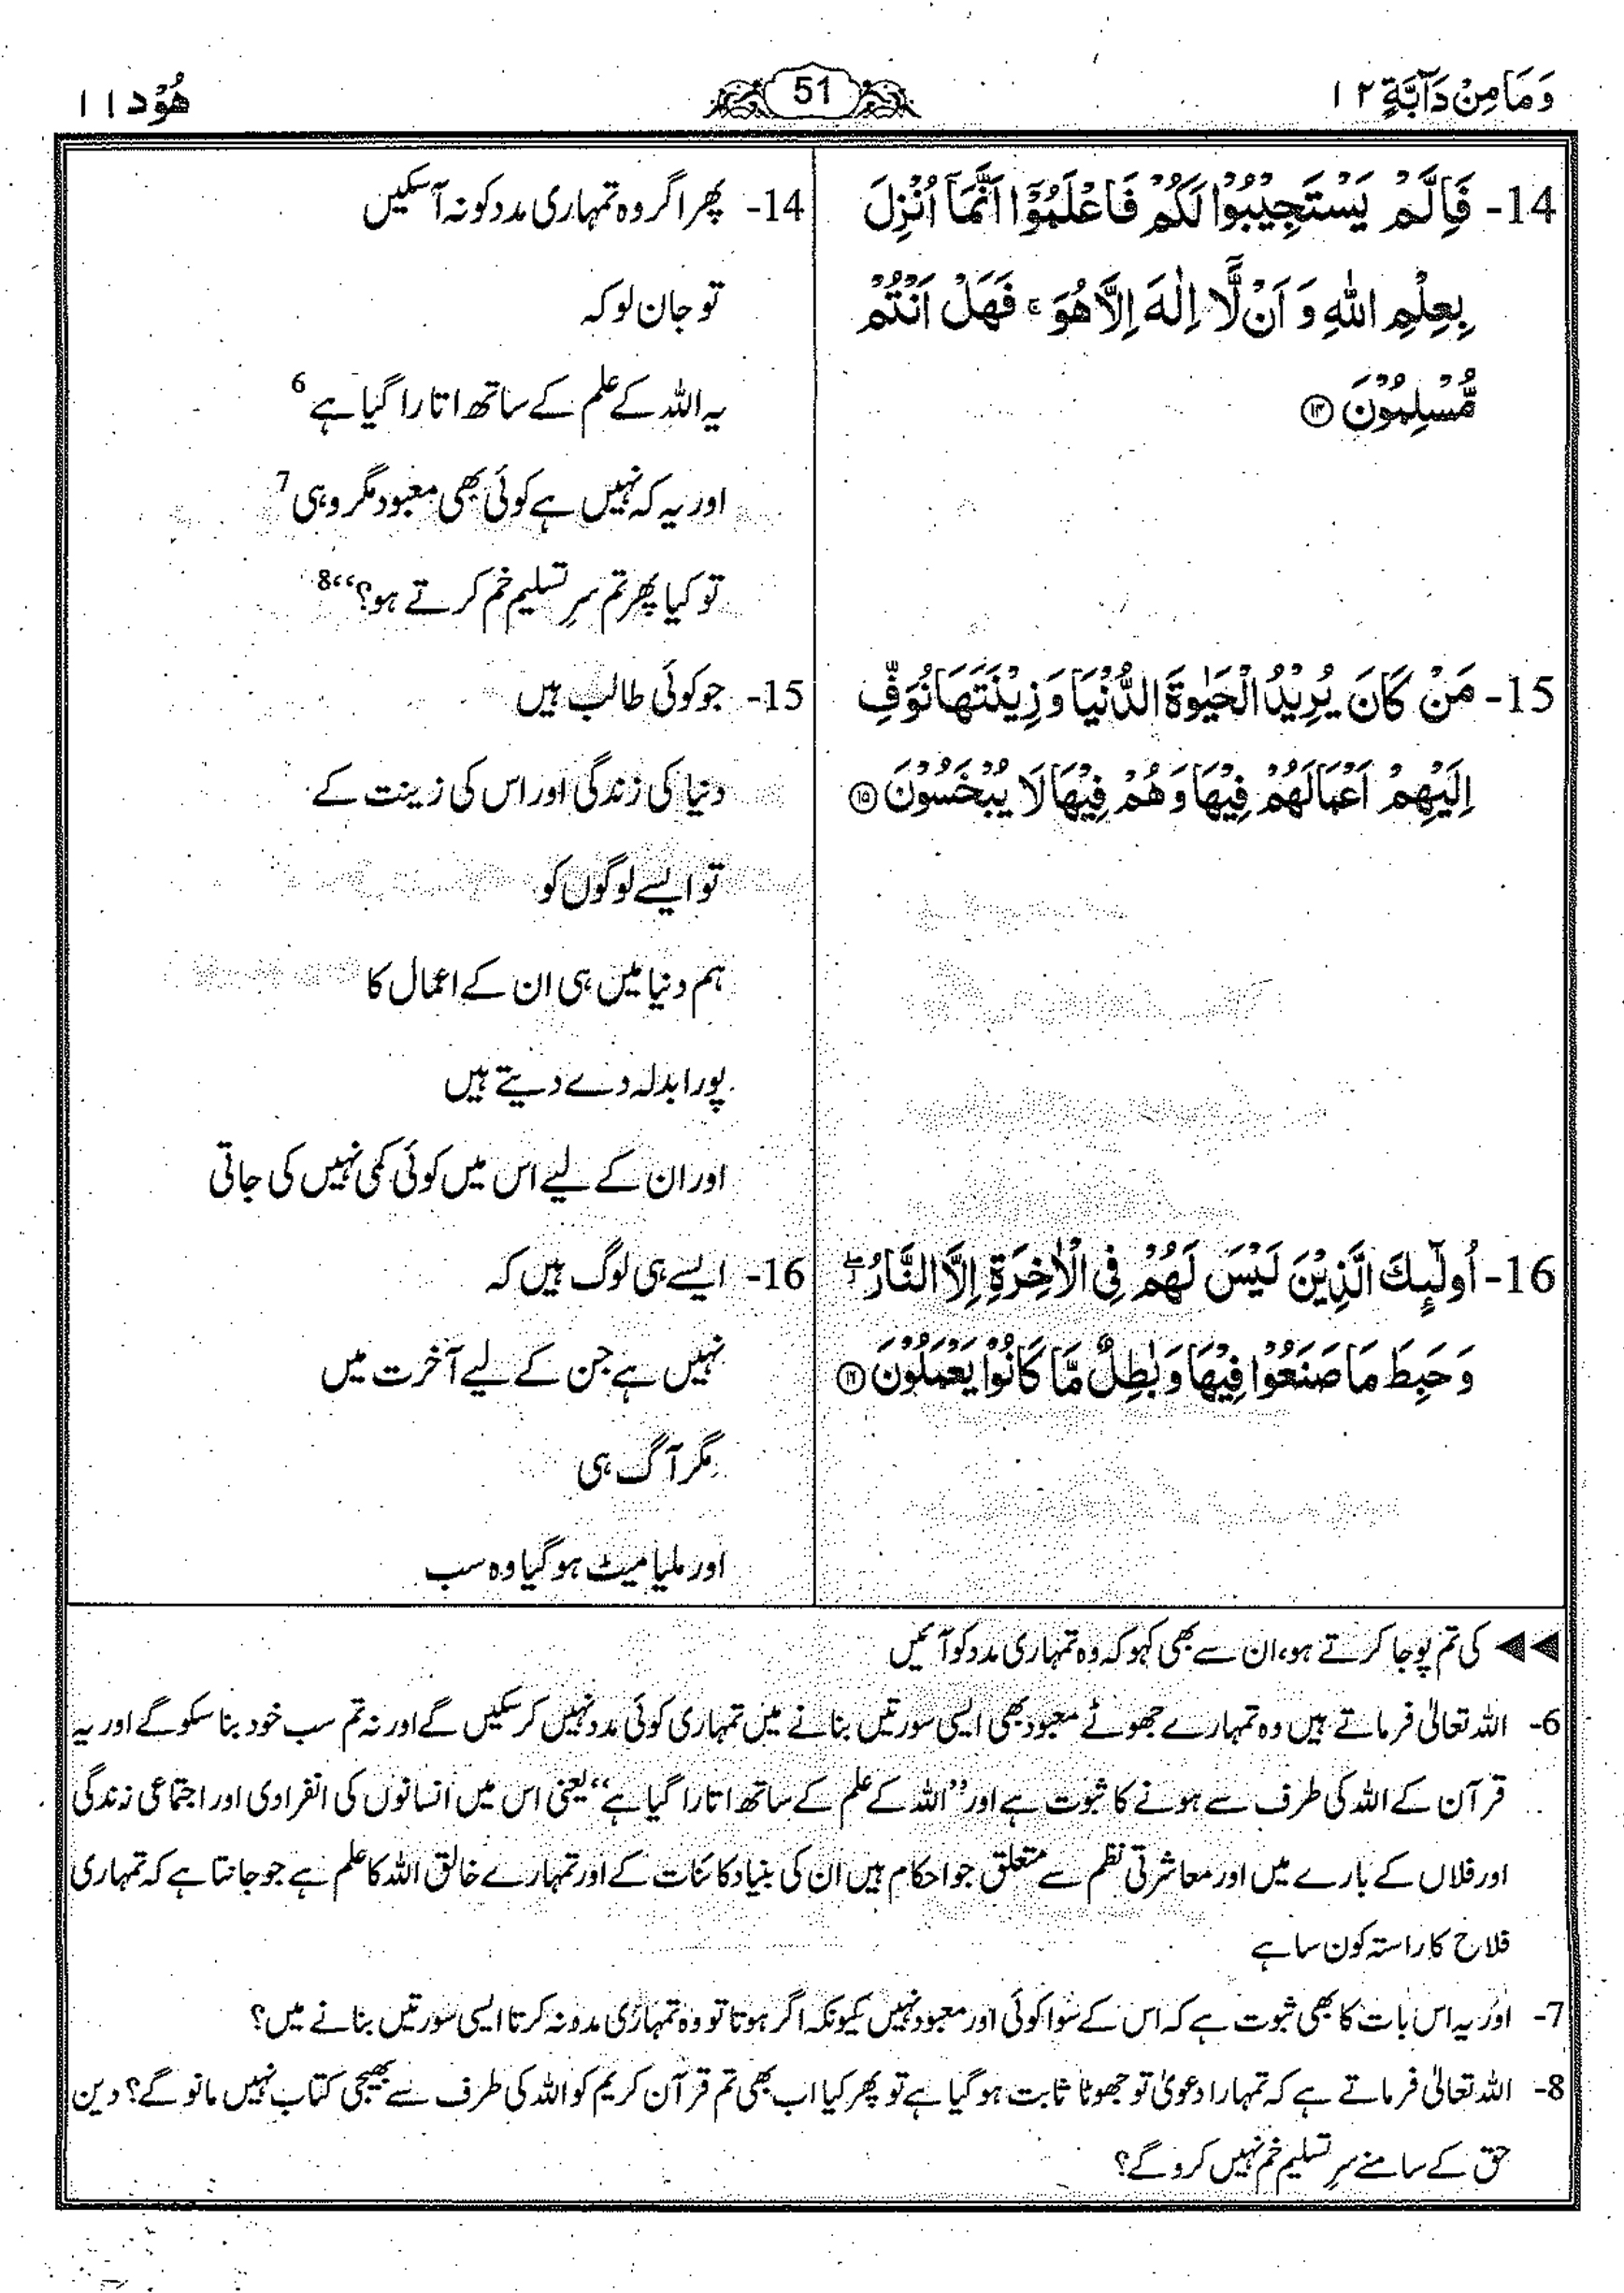 وَمَا مِنْ دَآبَّةٍ ۱۲
51
هُوْد ۱۱
14- فَاِلَّمْ يَسْتَجِيْبُوْا لَكُمْ فَاعْلَمُوْٓا اَنَّمَآ اُنْزِلَ
بِعِلْمِ اللّٰهِ وَ اَنْ لَّآ اِلٰهَ اِلَّا هُوَ ۚ فَهَلْ اَنْتُمْ
مُّسْلِمُوْنَ ۱۴
15- مَنْ كَانَ يُرِيْدُ الْحَيٰوةَ الدُّنْيَا وَ زِيْنَتَهَا نُوَفِّ
اِلَيْهِمْ اَعْمَالَهُمْ فِيْهَا وَ هُمْ فِيْهَا لَا يُبْخَسُوْنَ ۱۵
16- اُولٰٓئِكَ الَّذِيْنَ لَيْسَ لَهُمْ فِى الْاٰخِرَةِ اِلَّا النَّارُ ۖ
وَ حَبِطَ مَا صَنَعُوْا فِيْهَا وَ بٰطِلٌ مَّا كَانُوْا يَعْمَلُوْنَ ۱۶
14- پھر اگر وہ تمہاری مدد کو نہ آ سکیں
تو جان لو کہ
یہ اللہ کے علم کے ساتھ اتارا گیا ہے 6
اور یہ کہ نہیں ہے کوئی بھی معبود مگر وہی 7
تو کیا پھر تم سرِ تسلیم خم کرتے ہو؟“ 8
15- جو کوئی طالب ہیں
دنیا کی زندگی اور اس کی زینت کے
تو ایسے لوگوں کو
ہم دنیا میں ہی ان کے اعمال کا
پورا بدلہ دے دیتے ہیں
اور ان کے لیے اس میں کوئی کمی نہیں کی جاتی
16- ایسے ہی لوگ ہیں کہ
نہیں ہے جن کے لیے آخرت میں
مگر آگ ہی
اور ملیا میٹ ہو گیا وہ سب
◀◀ کی تم پوجا کرتے ہو، ان سے بھی کہو کہ وہ تمہاری مدد کو آئیں
6- اللہ تعالیٰ فرماتے ہیں وہ تمہارے جھوٹے معبود بھی ایسی سورتیں بنانے میں تمہاری کوئی مدد نہیں کر سکیں گے اور نہ تم سب خود بنا سکو گے اور یہ
قرآن کے اللہ کی طرف سے ہونے کا ثبوت ہے اور ”اللہ کے علم کے ساتھ اتارا گیا ہے“ یعنی اس میں انسانوں کی انفرادی اور اجتماعی زندگی
اور فلاں کے بارے میں اور معاشرتی نظم سے متعلق جو احکام ہیں ان کی بنیاد کائنات کے اور تمہارے خالق اللہ کا علم ہے جو جانتا ہے کہ تمہاری
فلاح کا راستہ کون سا ہے
7- اور یہ اس بات کا بھی ثبوت ہے کہ اس کے سوا کوئی اور معبود نہیں کیونکہ اگر ہوتا تو وہ تمہاری مدد نہ کرتا ایسی سورتیں بنانے میں؟
8- اللہ تعالیٰ فرماتے ہے کہ تمہارا دعویٰ تو جھوٹا ثابت ہو گیا ہے تو پھر کیا اب بھی تم قرآن کریم کو اللہ کی طرف سے بھیجی کتاب نہیں مانو گے؟ دین
حق کے سامنے سرِ تسلیم خم نہیں کرو گے؟